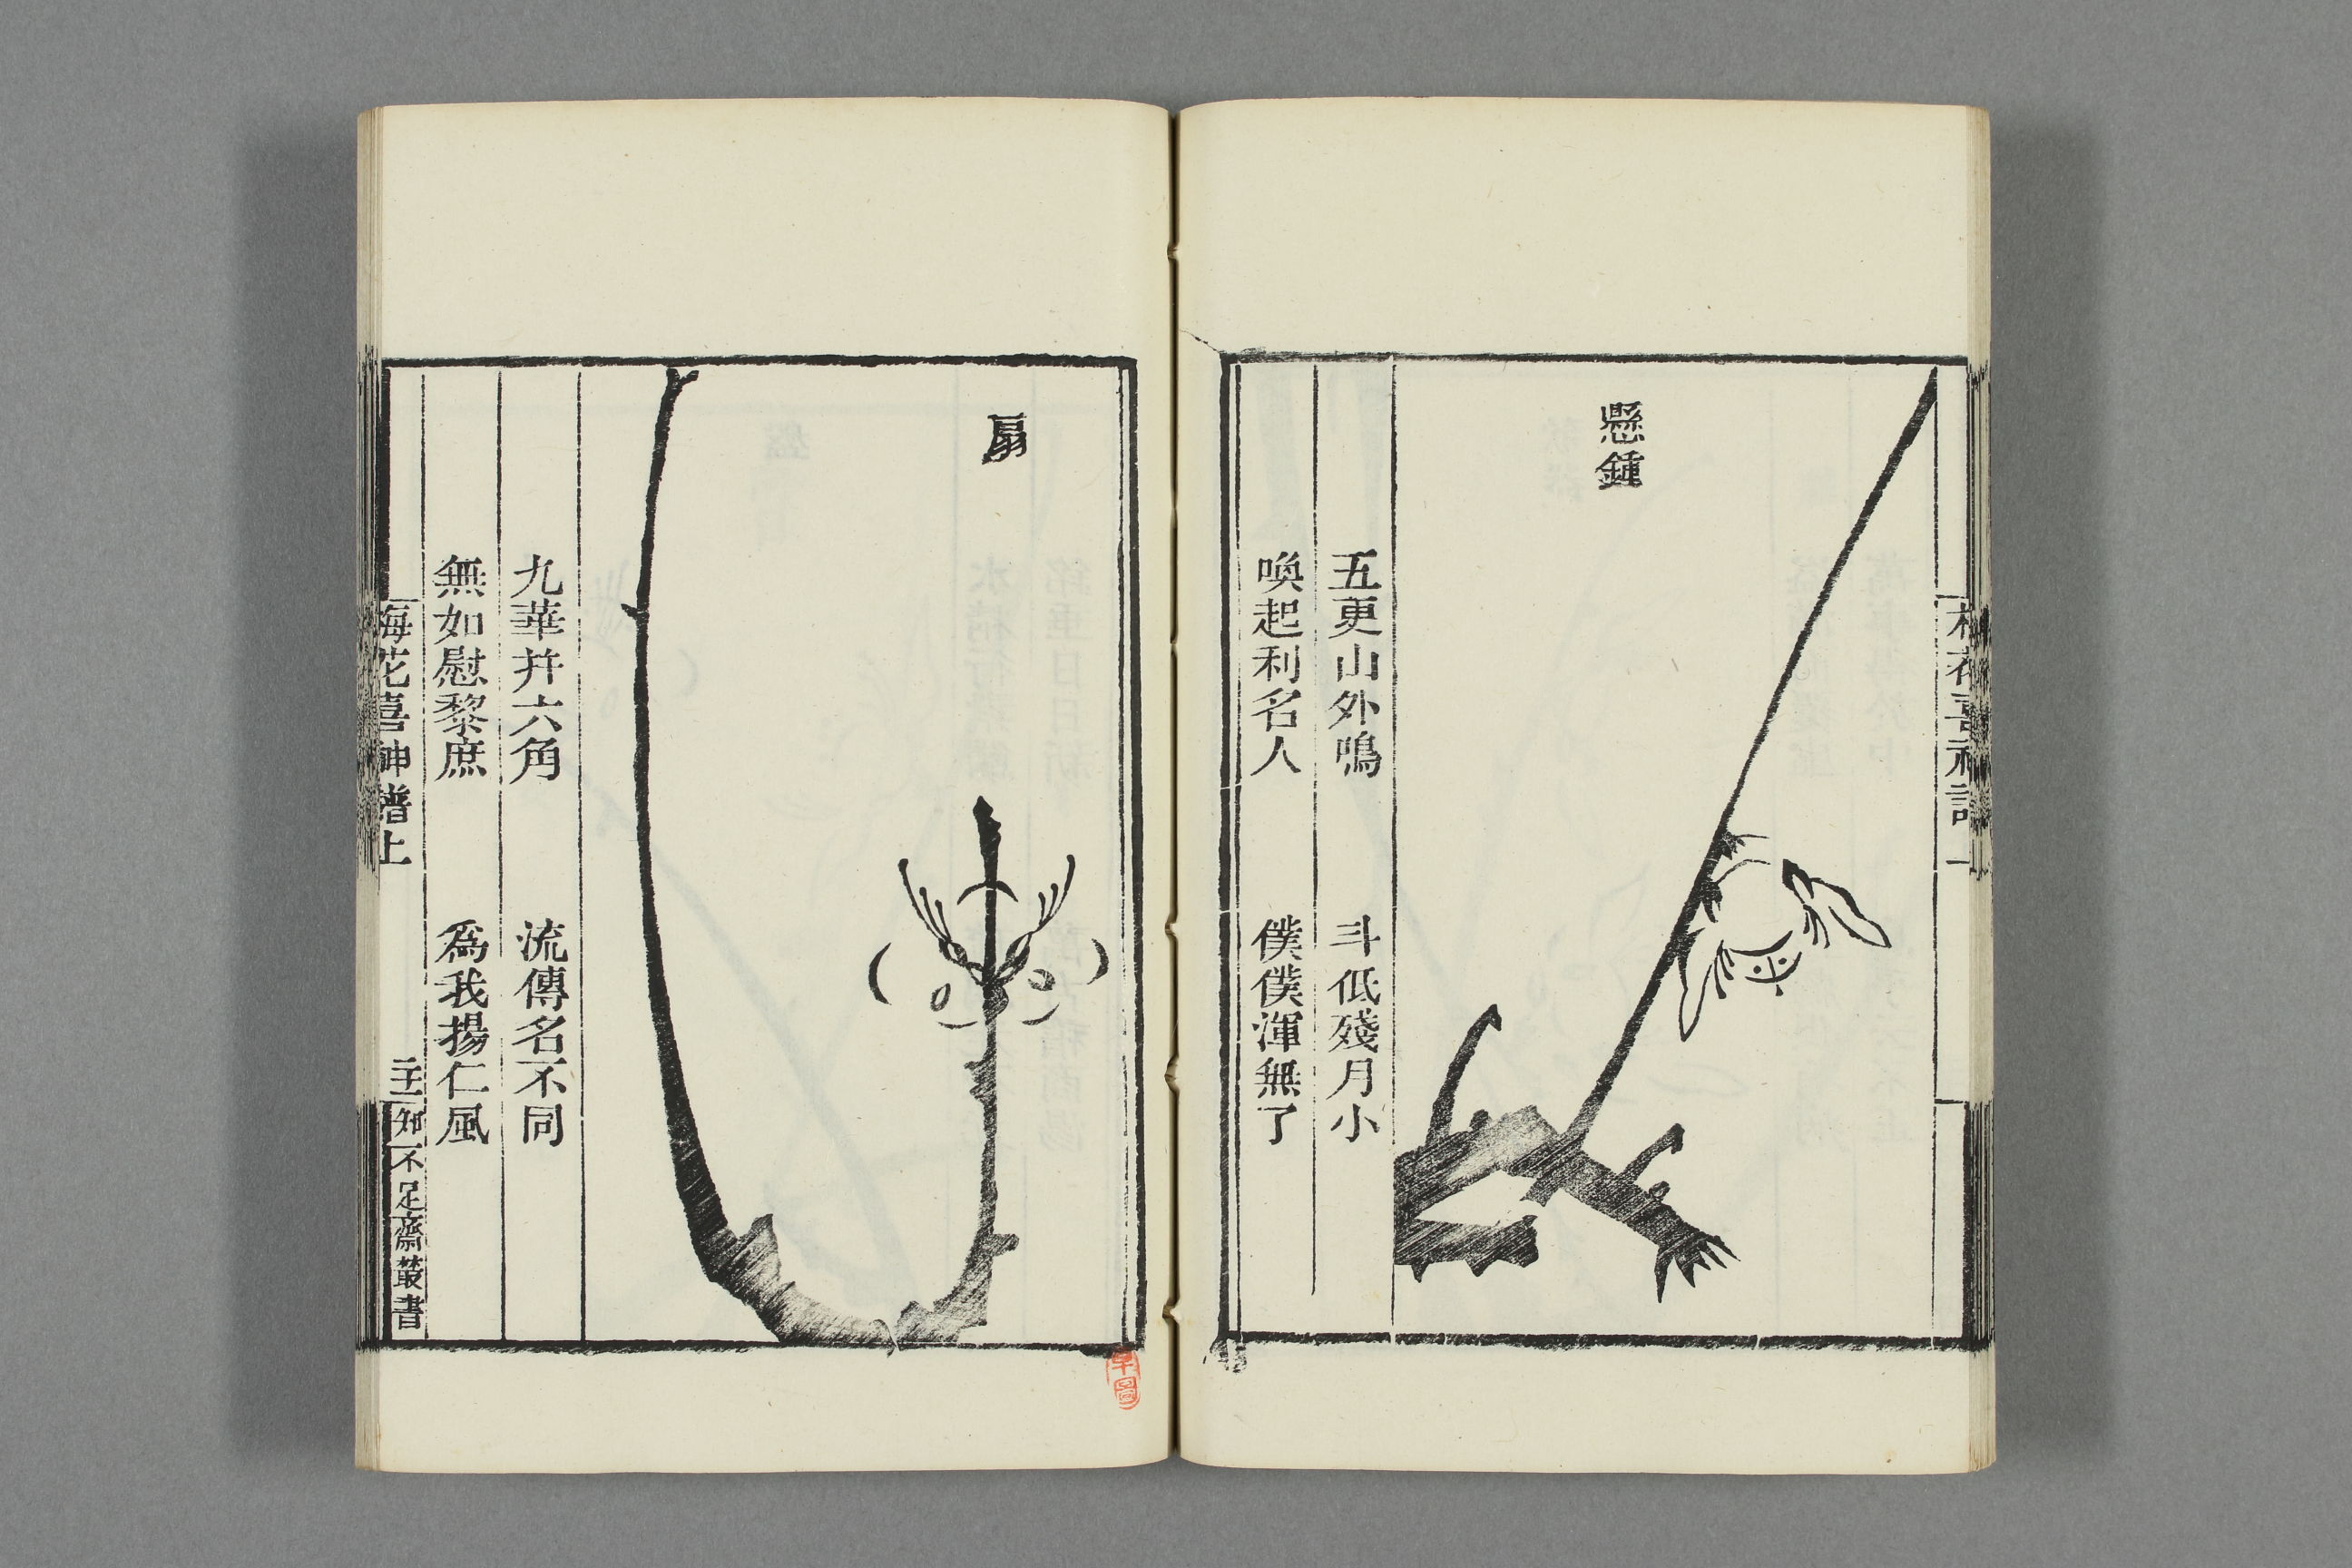 懸鍾
五更山外鳴 斗低殘月小
喚起利名人 僕僕渾無了
扇
九華幷六角 流傳名不同
無如慰黎庶 為我揚仁風
梅花喜神譜上
知不足齋叢書